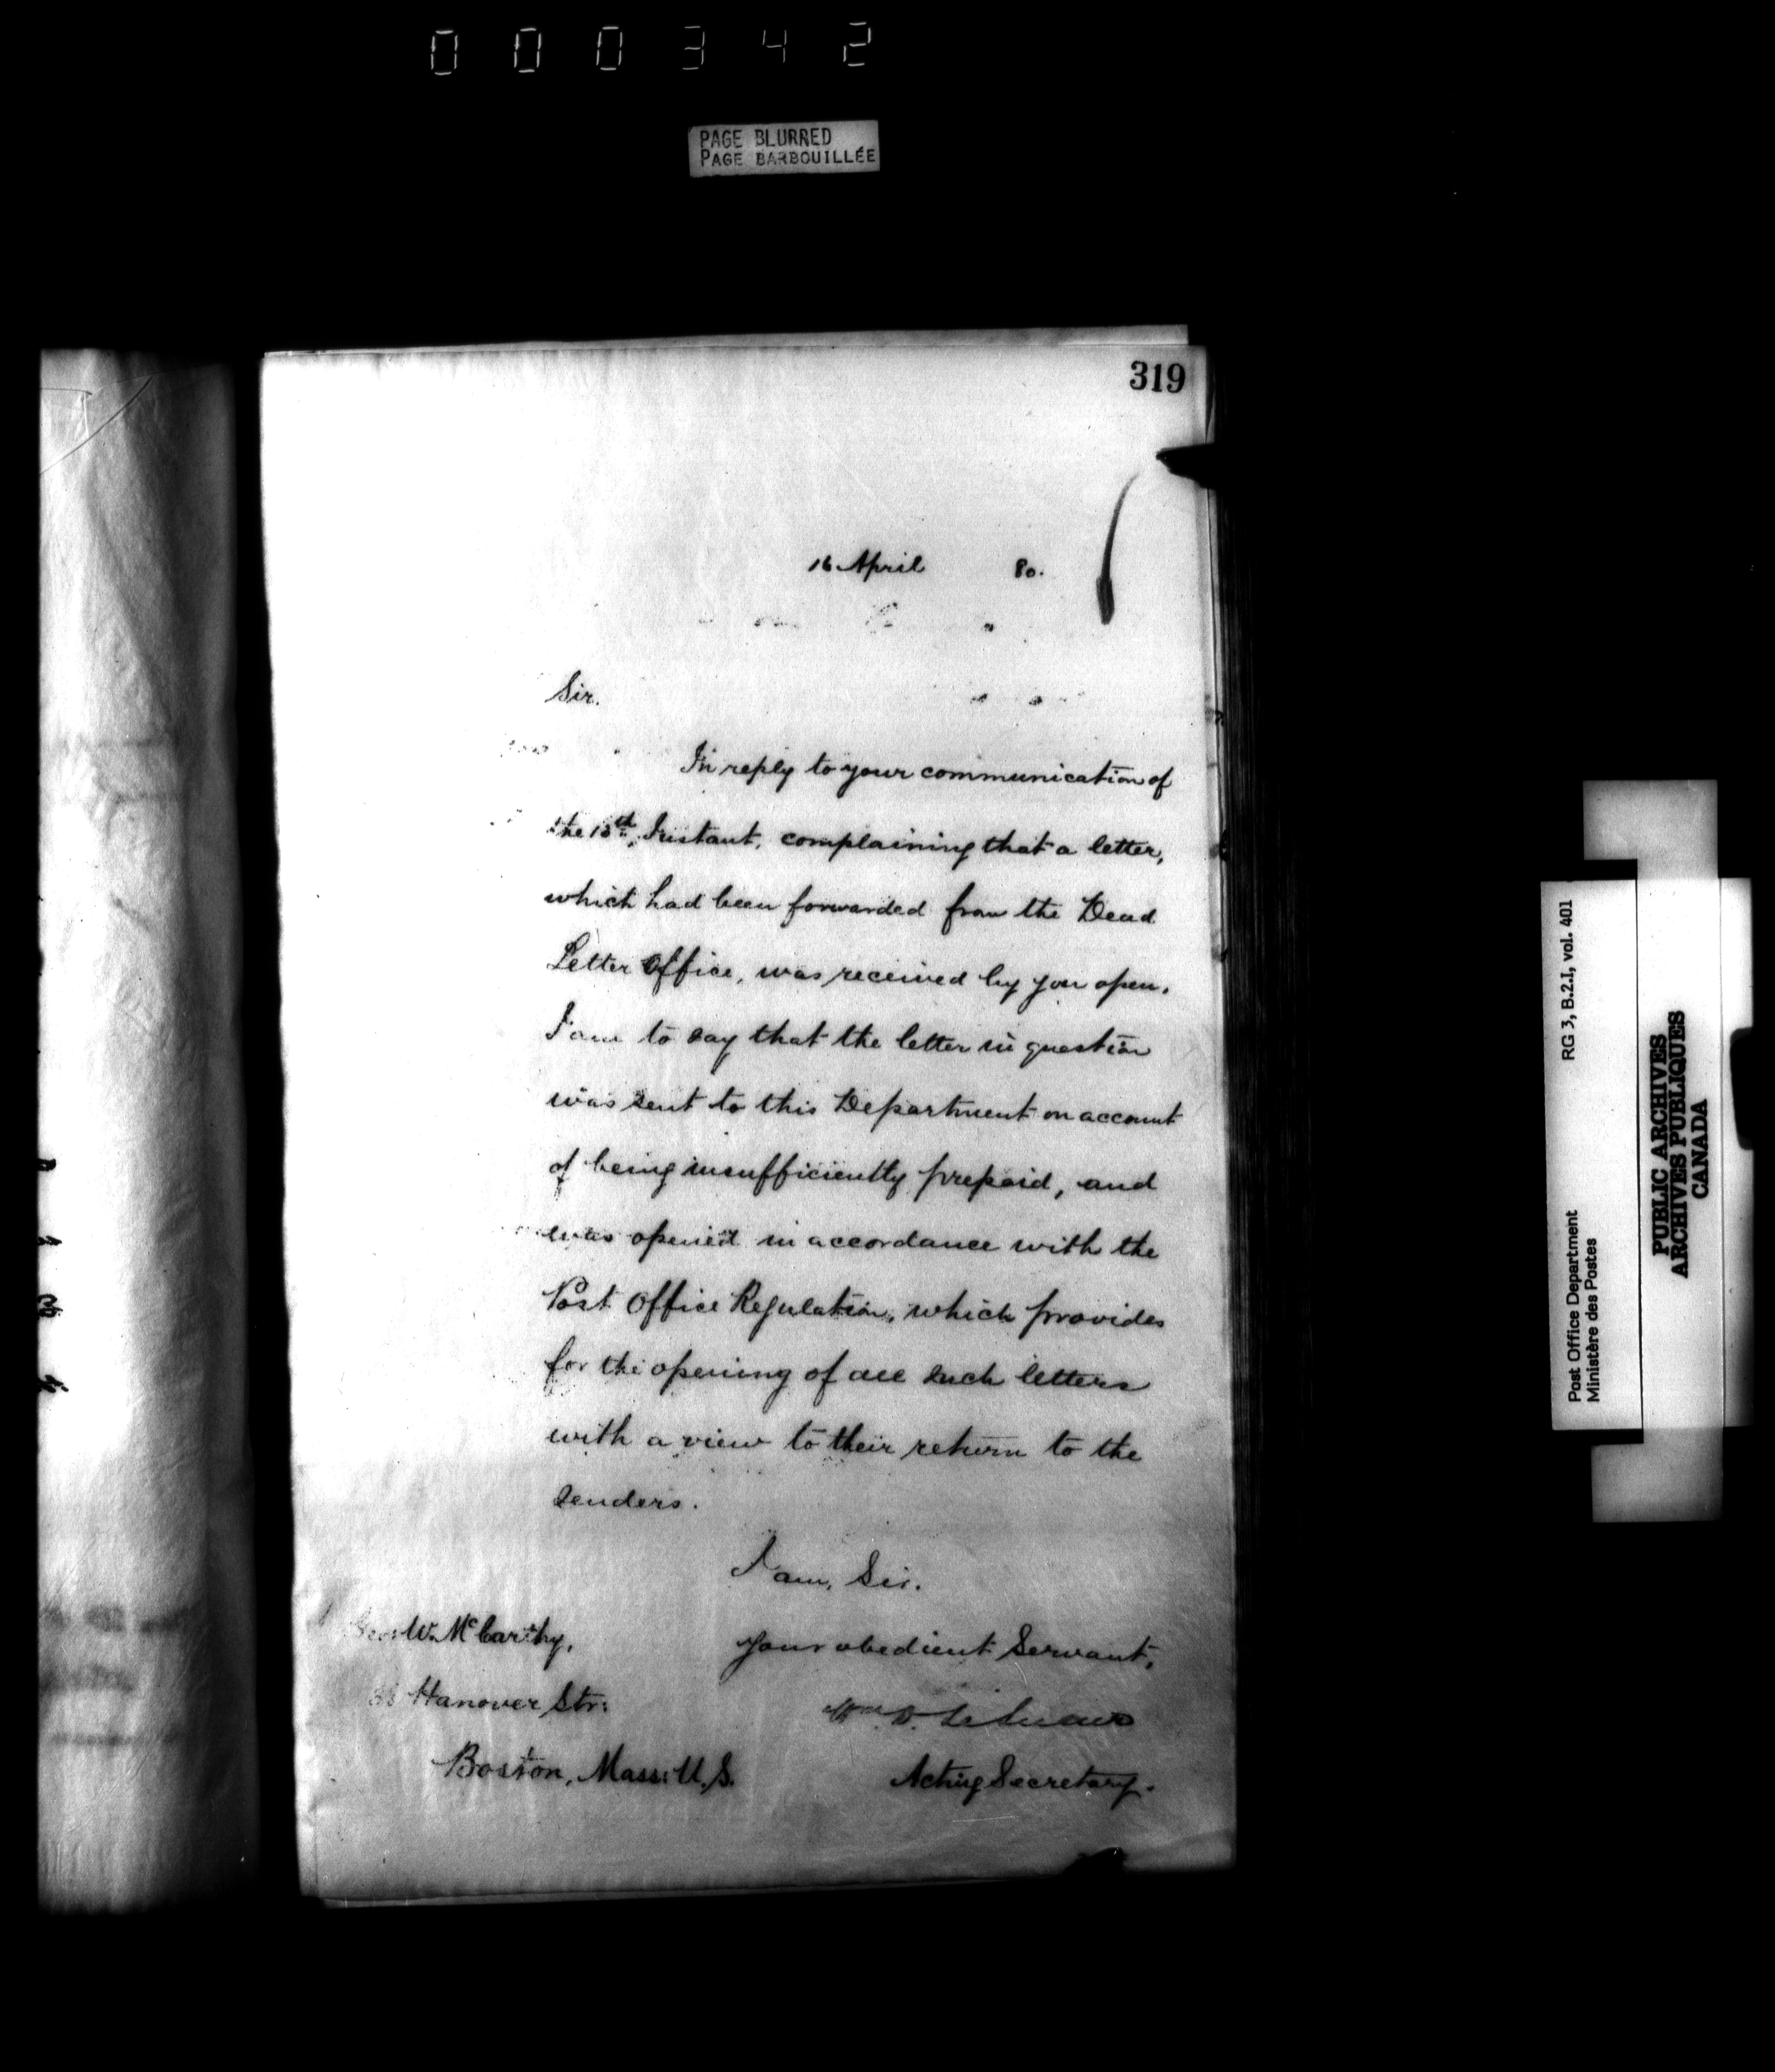 000342
PAGE BLURRED
PAGE BARBOUILLÉE
319
16 April 80.
Sir.
In reply to your communication of
the 13th, Instant, complaining that a letter,
which had been forwarded from the Dead
Letter Office, was received by you open.
I am to say that the letter in question
was sent to this Department on account
of being insufficiently prepaid, and
was opened in accordance with the
Post Office Regulation, which provides
for the opening of all such letters
with a view to their return to the
senders.
I am, Sir.
Your obedient Servant,
Wm D.
Acting Secretary.
W. McCarthy,
Hanover Str:
Boston, Mass: U.S.
RG 3, B.2.I, vol. 401
Post Office Department
Ministère des Postes
PUBLIC ARCHIVES
ARCHIVES PUBLIQUES
CANADA